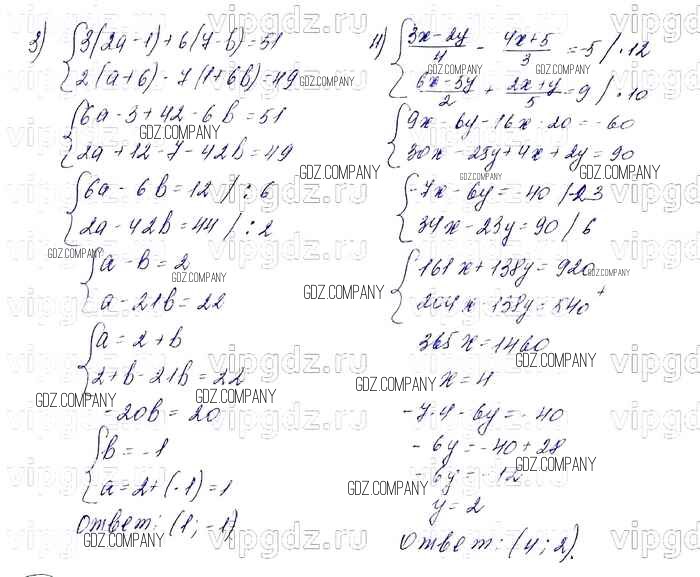 3) { 3(2a-1)+6(7-b)=51
2(a+6)-7(1+6b)=49
{ 6a-3+42-6b=51
2a+12-7-42b=49
{ 6a-6b=12 /:6
2a-42b=44 /:2
{ a-b=2
a-21b=22
{ a=2+b
2+b-21b=22
-20b=20
{ b=-1
a=2+(-1)=1
Ответ: (1;-1)
4) { (3x-2y)/4 - (4x+5)/3 = -5 /·12
(6x-5y)/2 + (2x+y)/5 = 9 /·10
{ 9x-6y-16x-20=-60
30x-25y+4x+2y=90
{ -7x-6y=-40 /-23
34x-23y=90 /6
{ 161x+138y=920
204x-138y=540 +
365x=1460
x=4
-7·4-6y=-40
-6y=-40+28
-6y=-12
y=2
Ответ: (4;2).
GDZ.COMPANY
vipgdz.ru